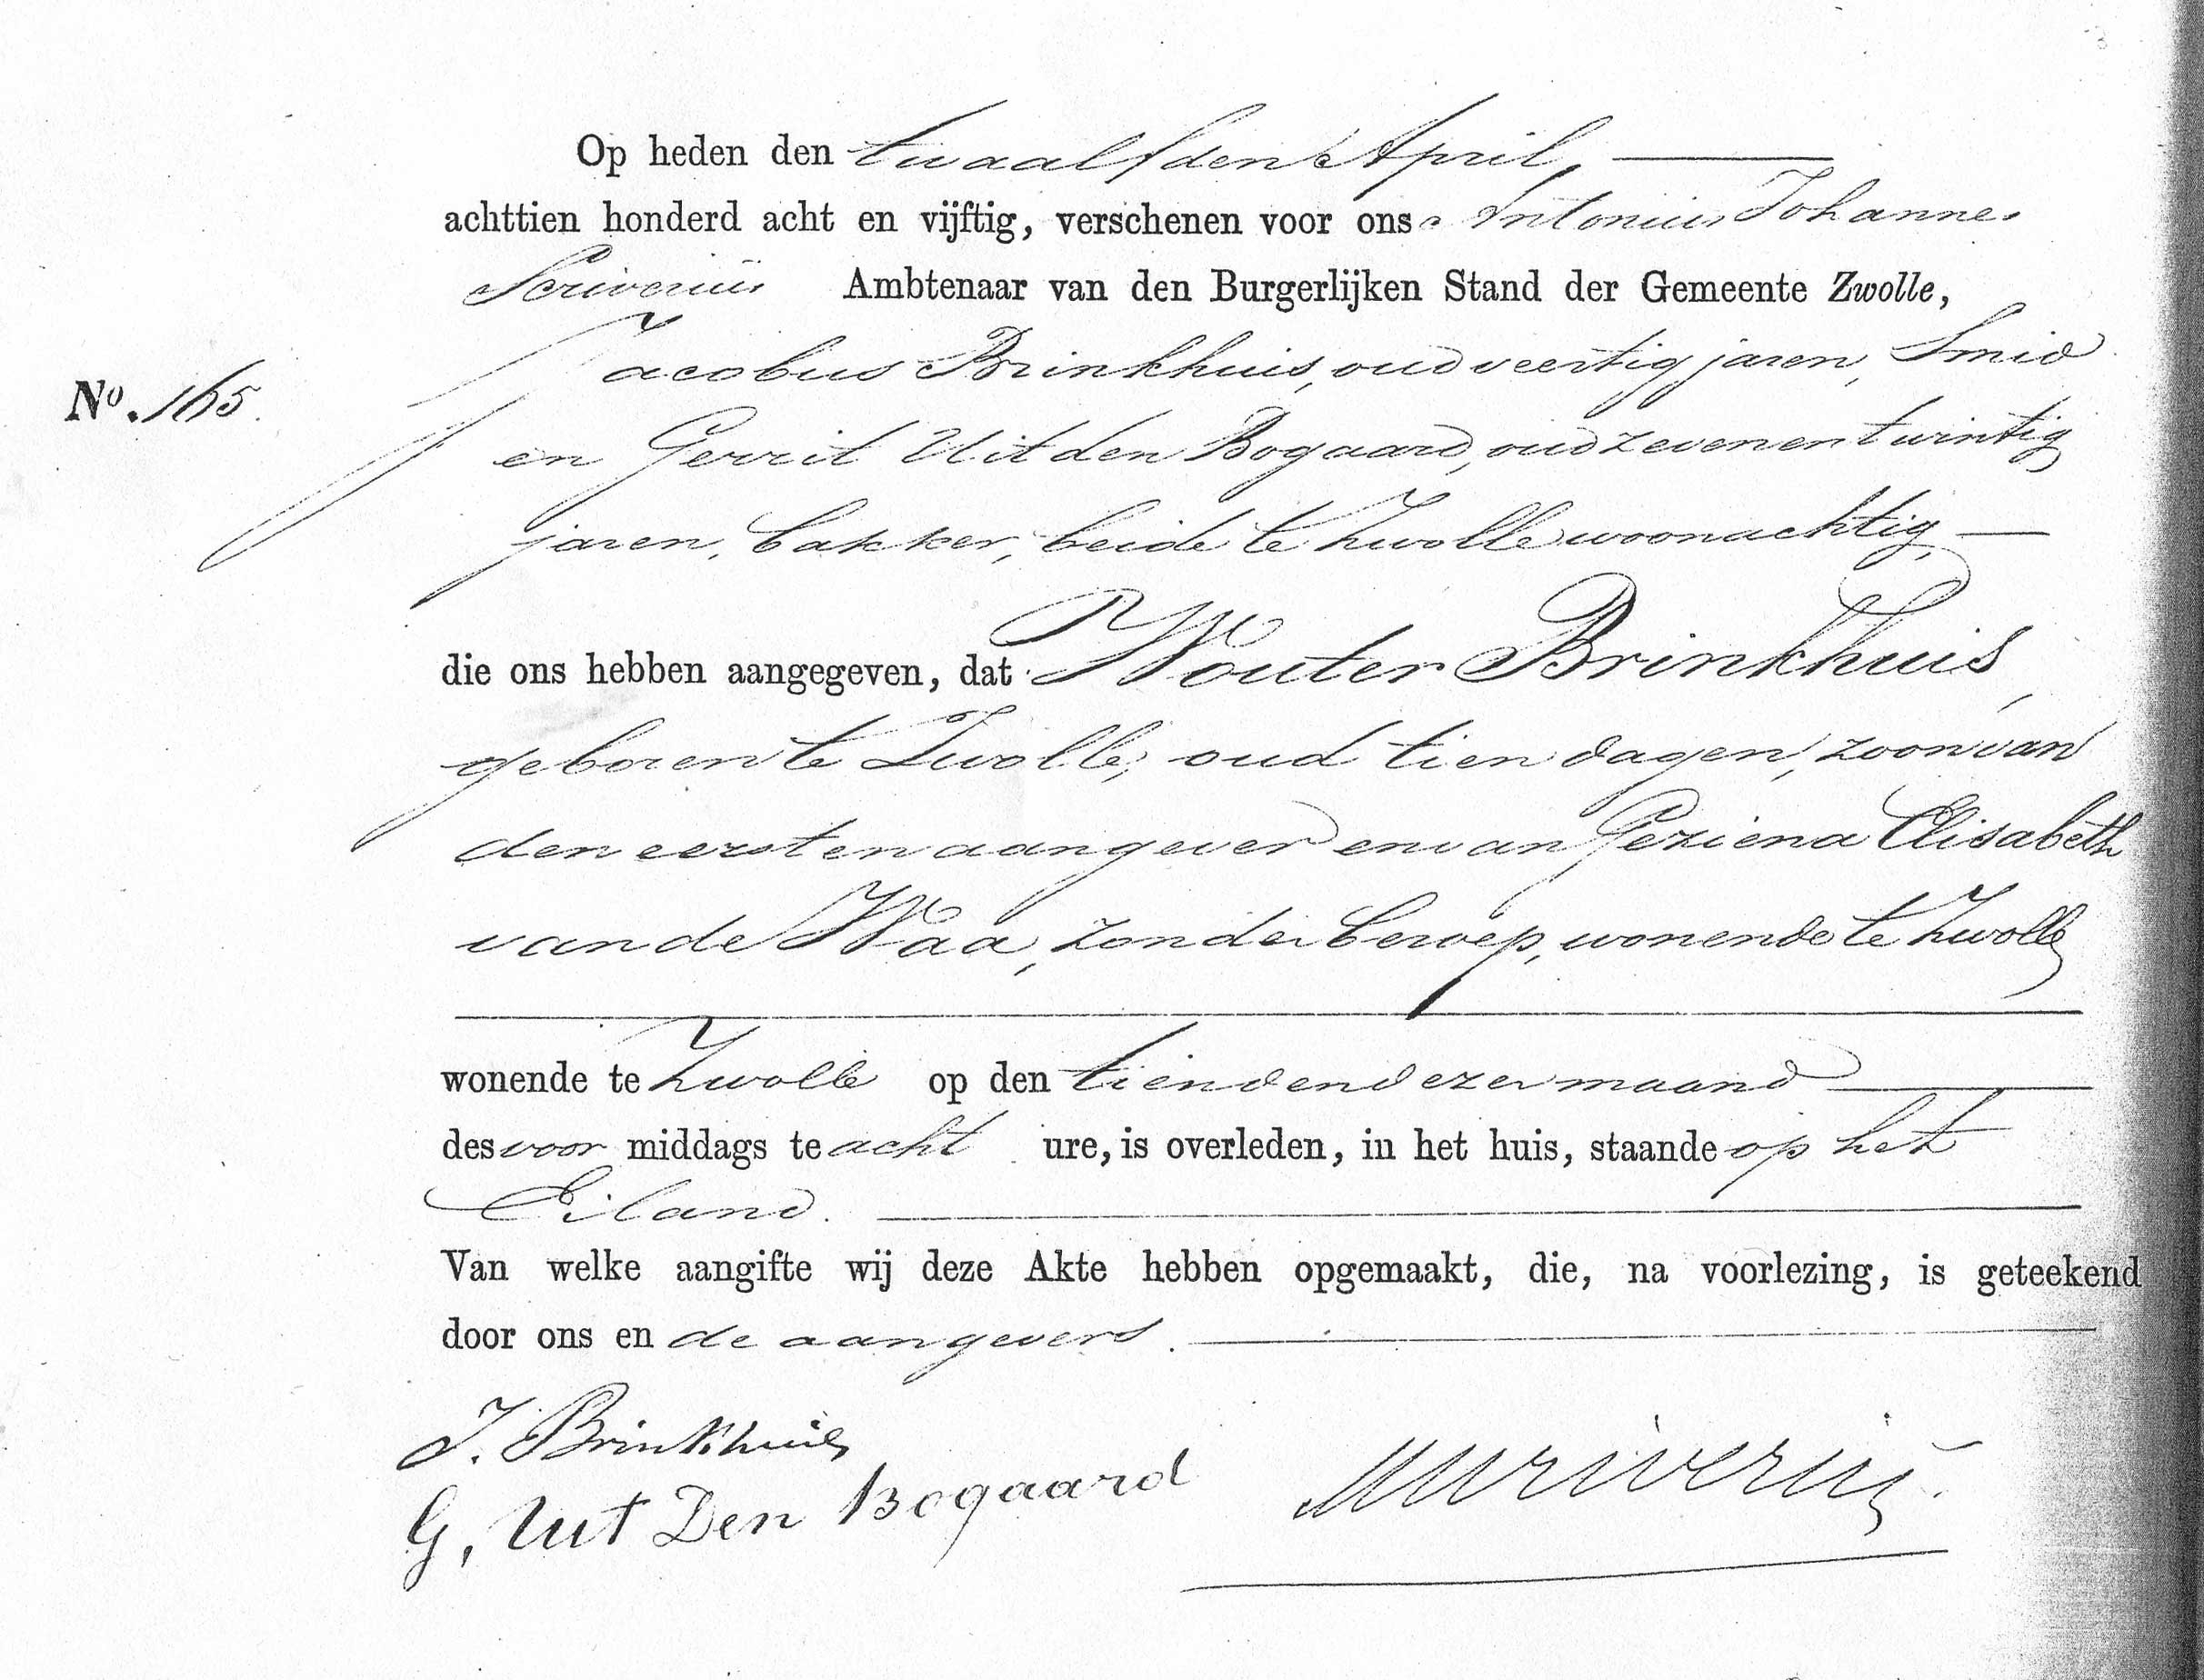 Op heden den twaalfden April,
achttien honderd acht en vijftig, verschenen voor ons Antonius Johannes
Scriverius Ambtenaar van den Burgerlijken Stand der Gemeente Zwolle,
Jacobus Brinkhuis, oud veertig jaren, Smid
No. 165.
en Gerrit Uit den Bogaard, oud zevenentwintig
jaren, bakker, beide te Zwolle woonachtig,
die ons hebben aangegeven, dat Wouter Brinkhuis,
geboren te Zwolle, oud tien dagen, zoon van
den eersten aangever en van Geziena Elisabeth
van de Waa, zonder beroep, wonende te Zwolle
wonende te Zwolle op den tienden dezer maand
des voor middags te acht ure, is overleden, in het huis, staande op het
Eiland.
Van welke aangifte wij deze Akte hebben opgemaakt, die, na voorlezing, is geteekend
door ons en de aangevers.
J. Brinkhuis
G, Uit Den Bogaard